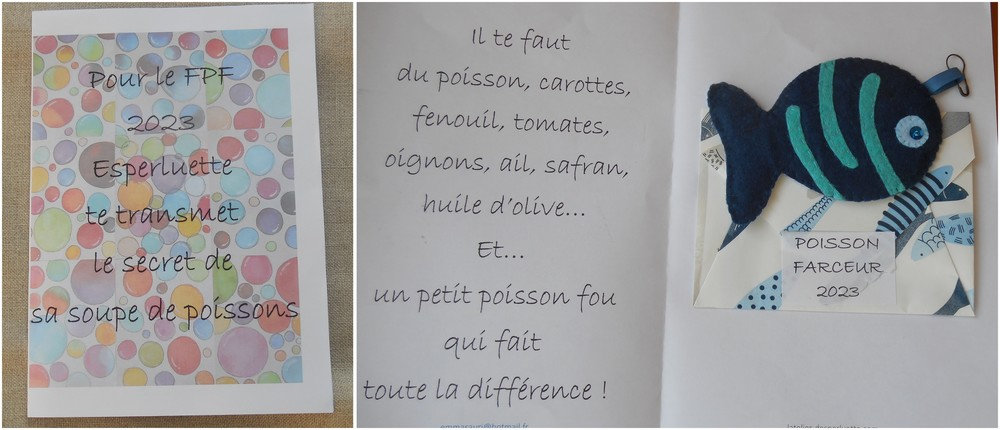 Pour le FPF
2023
Esperluette
te transmet
le secret de
sa soupe de poissons
Il te faut
du poisson, carottes,
fenouil, tomates,
oignons, ail, safran,
huile d'olive...
Et...
un petit poisson fou
qui fait
toute la différence !
POISSON
FARCEUR
2023